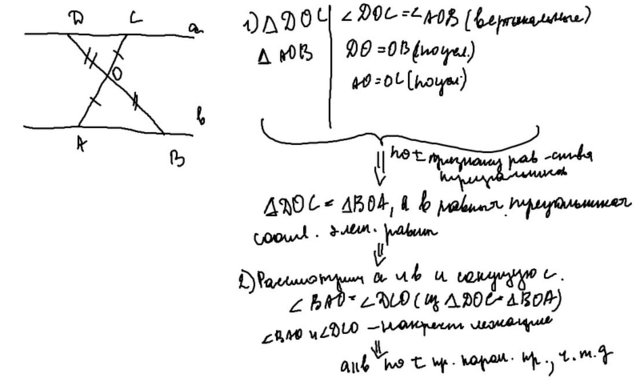 D C a
O
A B b
1) ΔDOC ∠DOC = ∠AOB (вертикальные)
ΔAOB DO = OB (по усл.)
AO = OC (по усл.)
по I признаку рав-ства
треугольников
ΔDOC = ΔBOA, а в равных треугольниках
соотв. элем. равны
2) Рассмотрим a и b и секущую c.
∠BAO = ∠DCO (из ΔDOC = ΔBOA)
∠BAO и ∠DCO – накрест лежащие
a॥b по I пр. парал. пр., ч.т.д